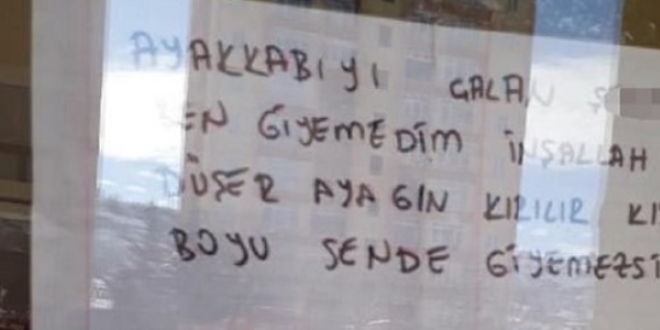 AYAKKABIYI GALAN Ş
BEN GİYEMEDİM İNŞALLAH
DÜŞER AYAGIN KIRILIR KI
BOYU SENDE GİYEMEZSİ